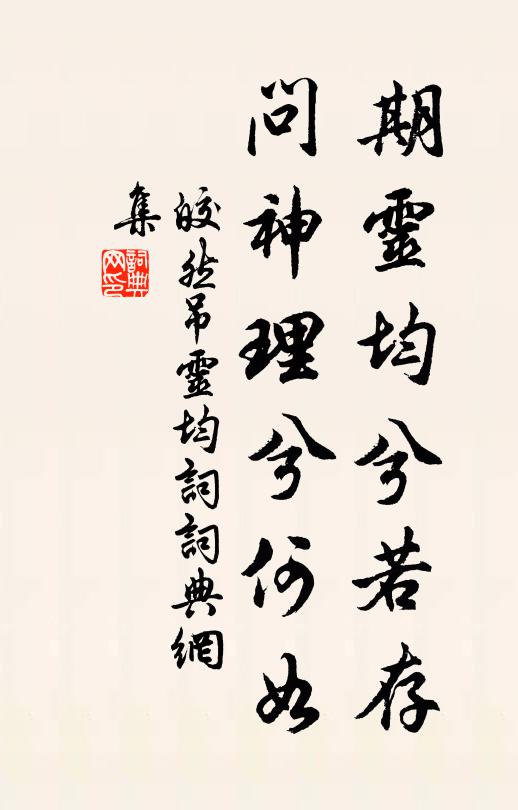 期靈均兮若存
問神理兮何如
皎然吊靈均詞詞典網
集
詞典
网印